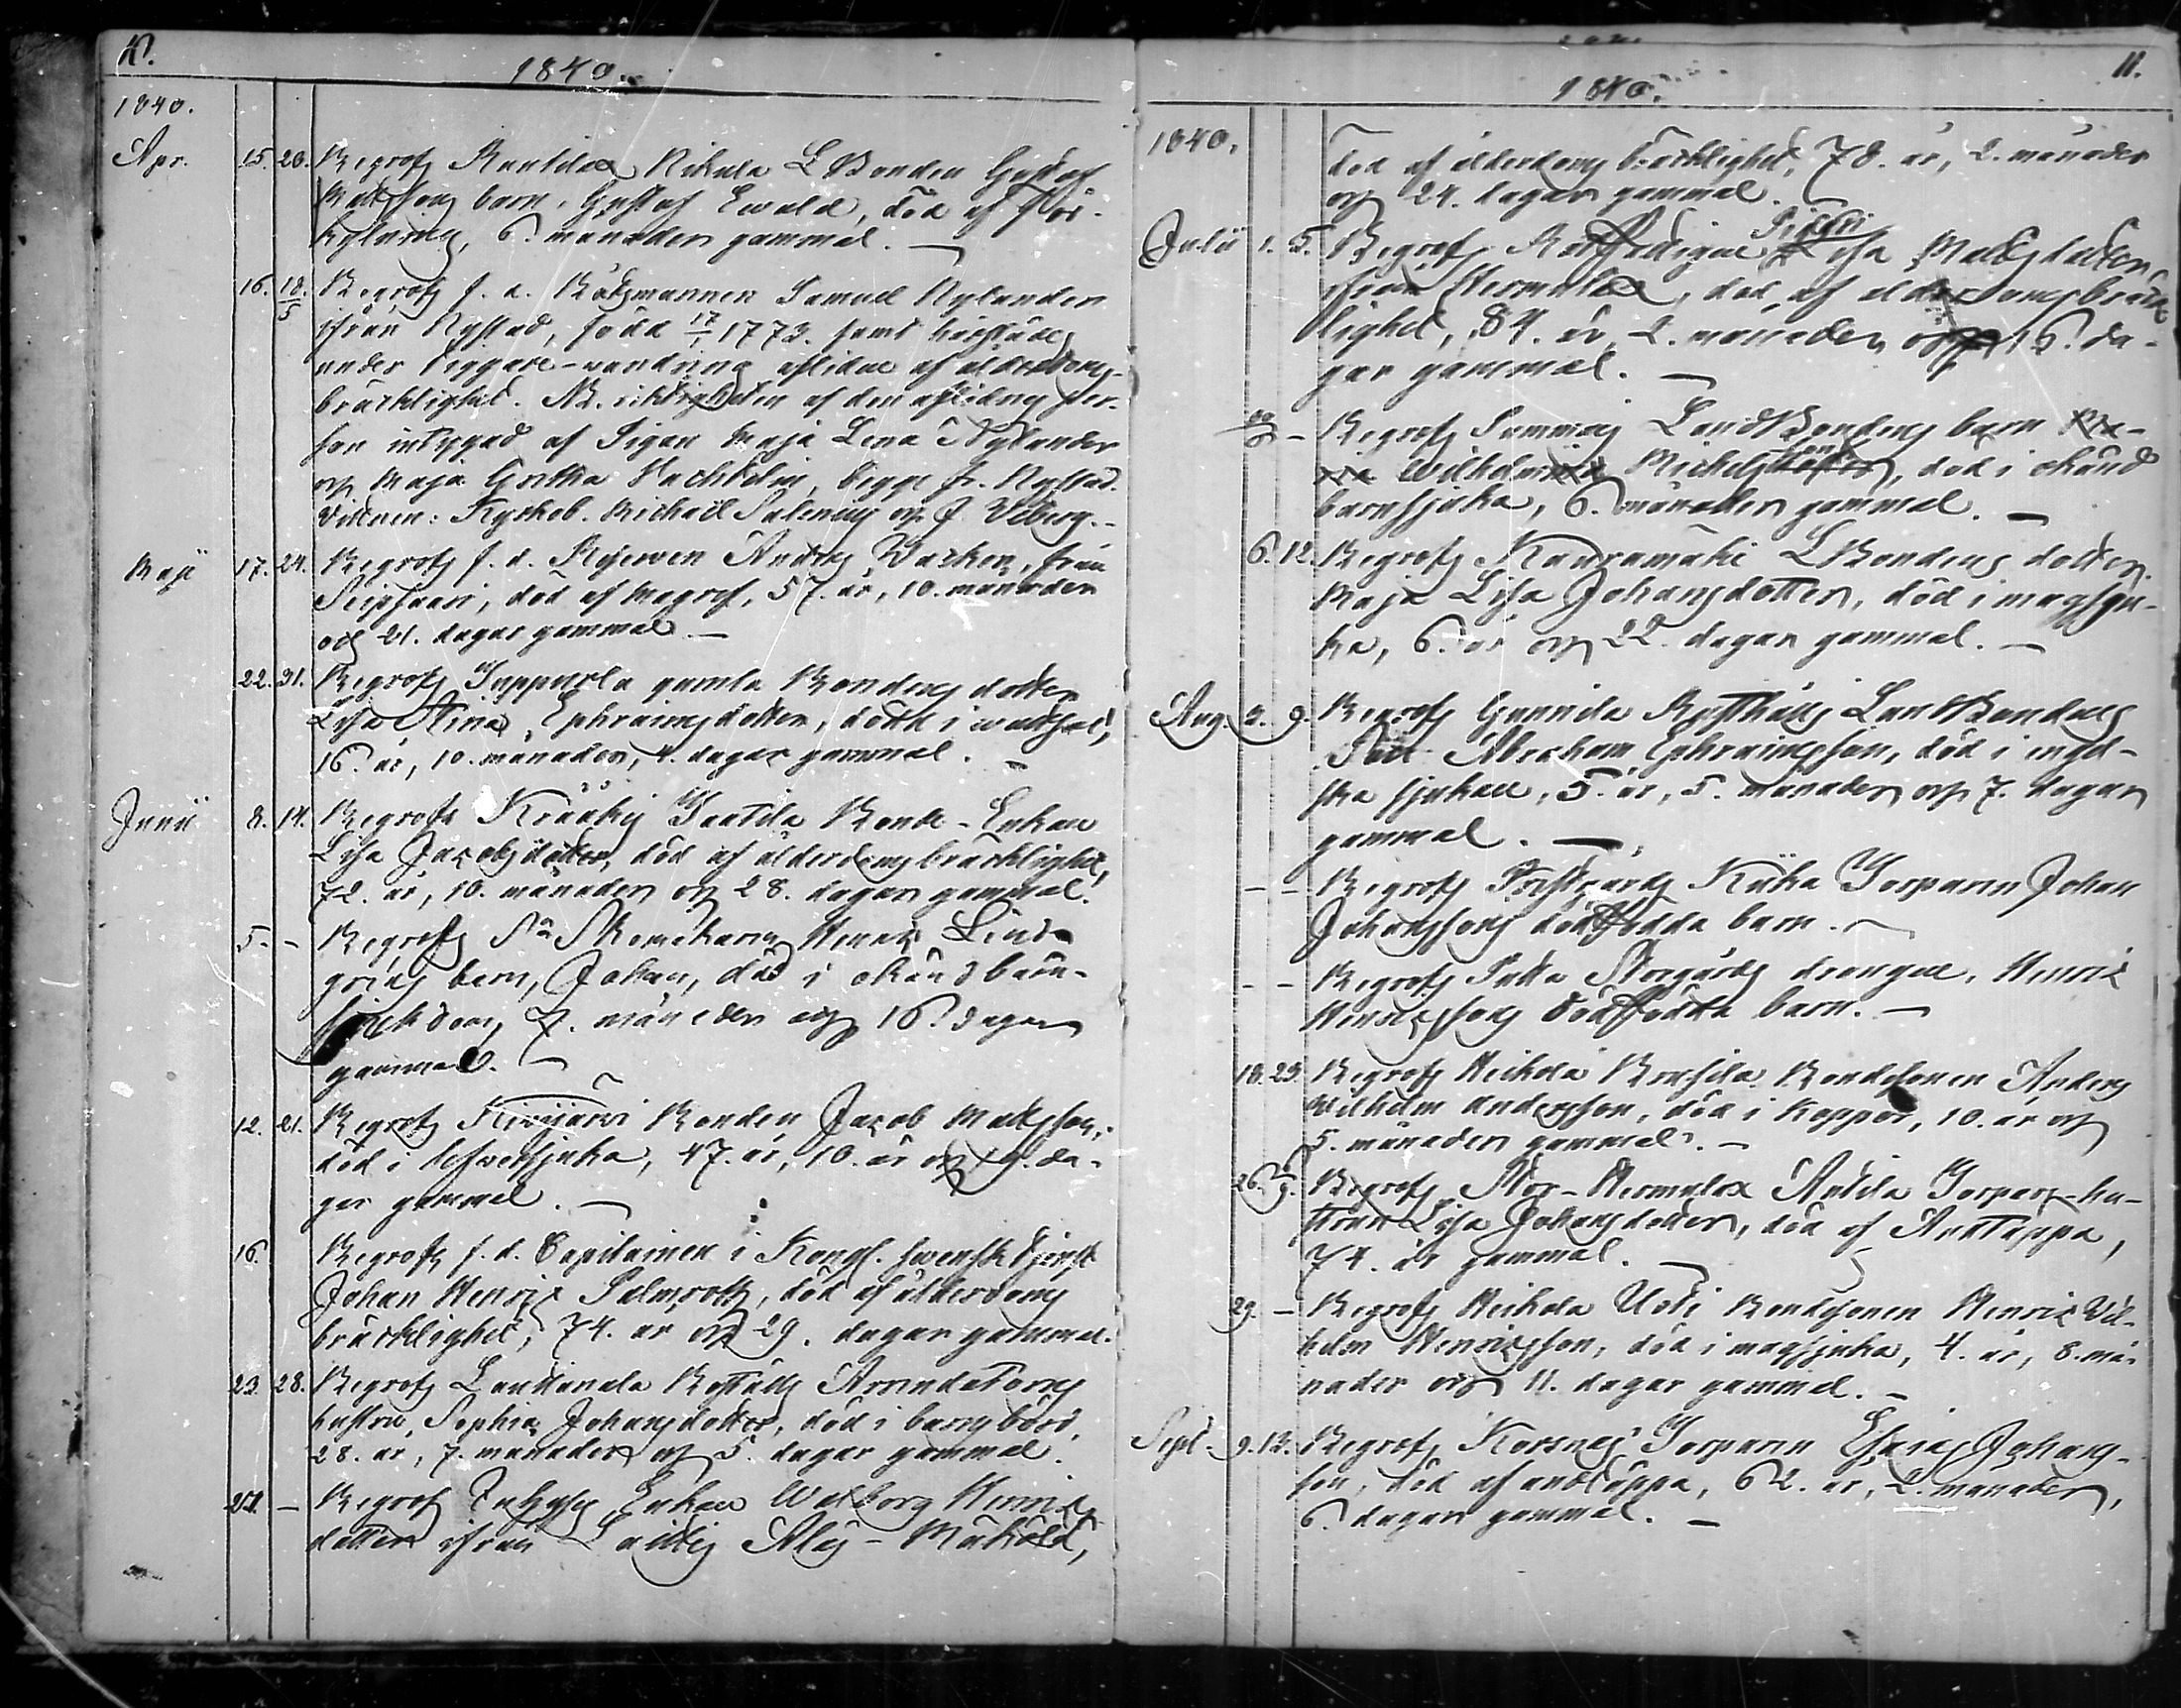 10.
1840.
1840.
Apr. 15. 26. Begrofs Nikula LBonden Gustaf
Mattssons barn, Gustaf Ewald, död af för-
kylning, 6. månader gammal.
16. 18/5 Begrofs f. d. Båtsmannen Samuel Nylander
ifrån Nystad, född 17/1 1773. samt härstädes
under tiggare-vandring afliden af ålderdoms-
bräcklighet. NB. riktigheten af den aflidnes per-
son intygad af Pigan Maja Lena Nylander
och Maja Gretha, begge fr. Nystad.
Vittnen: Michaël Salenius och J. Viberg.
Maji 17. 24. Begrofs f. d. Anders Warken, från
Seipsaari, död af magref, 57. år, 10. månader
och 21. dagar gammal.
22. 31. Begrofs Juppurla gamla Bondens dotter
Lisa Stina Ephraimsdotter, död i wattsot,
16. år, 10. månader, 4. dagar gammal.
Junii 8. 14. Begrofs Bonde-Enkan
Lisa Jacobsdotter, död af ålderdomsbräcklighet,
72. år, 10. månader och 28. dagar gammal.
5. - Begrofs Skomakaren Henric Lind-
gréns barn, Johan, död i okänd barn-
sjukdom, månader och 16. dagar
gammal.
12. 21. Begrofs Kivijärvi Bonden Jacob Mattsson,
död i lefwersjuka, 47. år, 10. år och 19. da-
gar gammal.
16. Begrofs f. d. Capitainen i Kongl. Swensk tjenst
Johan Henric Palmroth, död af ålderdoms
bräcklighet, 74. år och 29. dagar gammal.
23. 28. Begrofs Lankanala Boställs Arrendators
hustru, Sophia Johansdotter, död i barnsbörd,
28. år, 7. månader och 5. dagar gammal.
- Begrofs Enkan Walborg Henrics-
dotter ifrån Laitis
11.
1840.
1840.
död af ålderdoms bräcklighet, 78. år, 2. månader
och 24. dagar gammal.
Julii 1. 5. Begrofs Rotfattige Pigan Lisa Mattsdotter
ifrån Hermula, död af ålderdomsbräck-
lighet, 84. år, 2. månader och 16. da-
gar gammal.
- Begrofs Sammas LandtBondens barn
Wilhelm Michels, död i okänd
barnsjuka, 6. månader gammal.
6. 12. Begrofs Kauramäki LBondens dotter
Maja Lisa Johansdotter, död i magsju-
ka, 6. år och 22. dagar gammal.
Aug. 3. 9. Begrofs Gunnila Rusthålls LandtBondens
Son Abraham Ephraimsson, död i engel-
ska sjukan, 5. år, 5. månader och 7. dagar
gammal.
- - Begrofs Prestgårds Torparen Johan
Johanssons dödfödda barn.
- - Begrofs Storgårds drängen, Henric
Henricssons dödfödda barn.
18. 23. Begrofs Heikola Bondesonen Anders
Wilhelm Andersson, död i Koppor, 10. år och
5. månader gammal.
26. Begrofs Stor-Hermula Antila Torpare-hu-
strun Lisa Johansdotter, död af Andtäppa,
74. år gammal.
29. - Begrofs Heikola Uoti Bondesonen Henric Vil-
helm Henricsson, död i magsjuka, 4. år, 8. må-
nader och 11. dagar gammal.
Sept. 9. 13. Begrofs Korsnäs Torparen Esaias Johans-
son, död af andtäppa, 62. år, 2. månader,
6. dagar gammal.